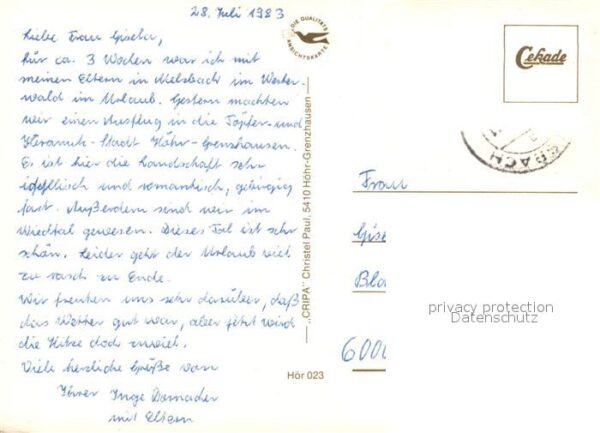 28. Juli 1983
Liebe Frau Gisela,
für ca. 3 Wochen war ich mit
meinen Eltern in Melsbach im Wester-
wald im Urlaub. Gestern machten
wir einen Ausflug in die Töpfer- und
Keramik-Stadt Höhr-Grenzhausen.
Es ist hier die Landschaft sehr
idyllisch und romantisch, gebirgig
fast. Außerdem sind wir im
Wiedtal gewesen. Dieses Tal ist sehr
schön. Leider geht der Urlaub viel
zu rasch zu Ende.
Wir freuten uns sehr darüber, daß
das Wetter gut war, aber jetzt wird
die Hitze doch zuviel.
Viele herzliche Grüße von
Ihrer Inge
mit Eltern
DIE QUALITÄTS
ANSICHTSKARTE
„CRIPA" Christel Paul, 5410 Höhr-Grenzhausen
Hör 023
Cekade
BACH
Frau
Gise
Bla
6000
privacy protection
Datenschutz